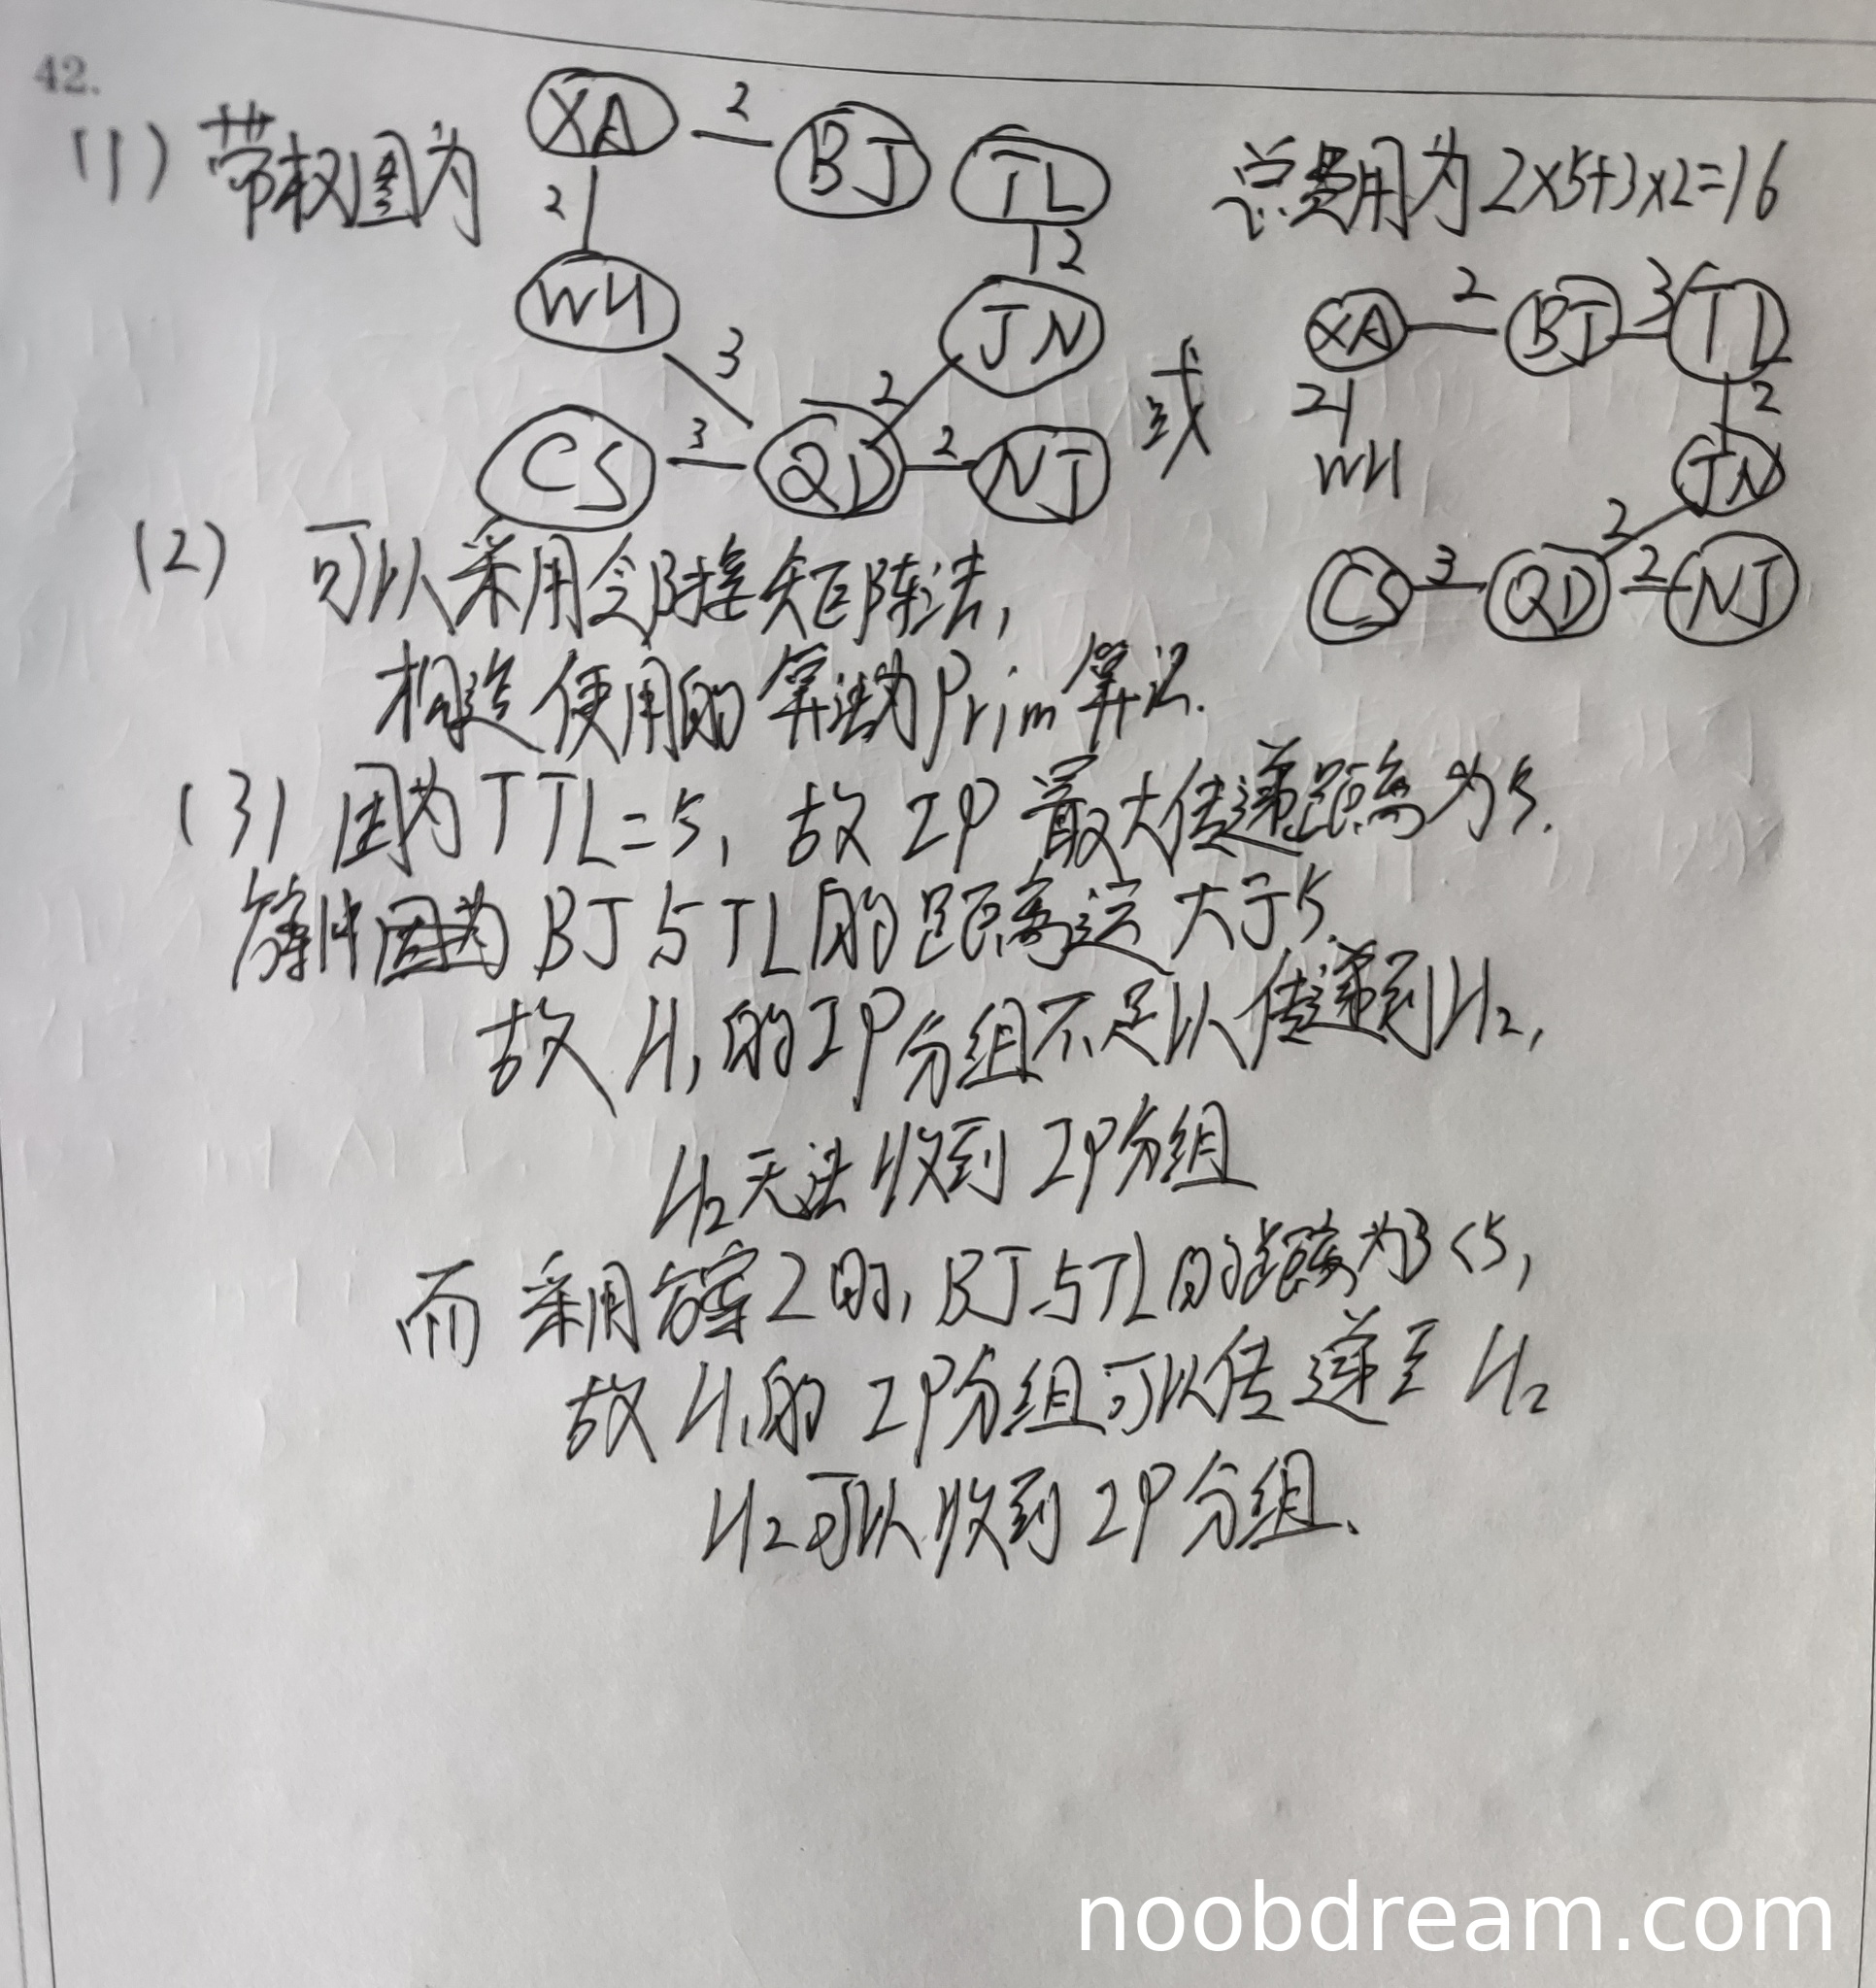 42.
(1) 带权图为
XA 2 BJ TL
总费用为2×5+3×2=16
2 2
WH JN
3 2
CS 3 QD 2 NJ
或
XA 2 BJ 3 TL
2 2
WH JN
2
CS 3 QD 2 NJ
(2) 可以采用邻接矩阵法,
构造使用的算法为Prim算法.
(3) 因为TTL=5, 故IP最大传递距离为5.
因为BJ与TL的距离远大于5.
故H₁的IP分组不足以传递到H₂,
H₂无法收到IP分组
而采用方案2时, BJ与TL的距离为3<5,
故H₁的IP分组可以传递至H₂
H₂可以收到IP分组.
noobdream.com